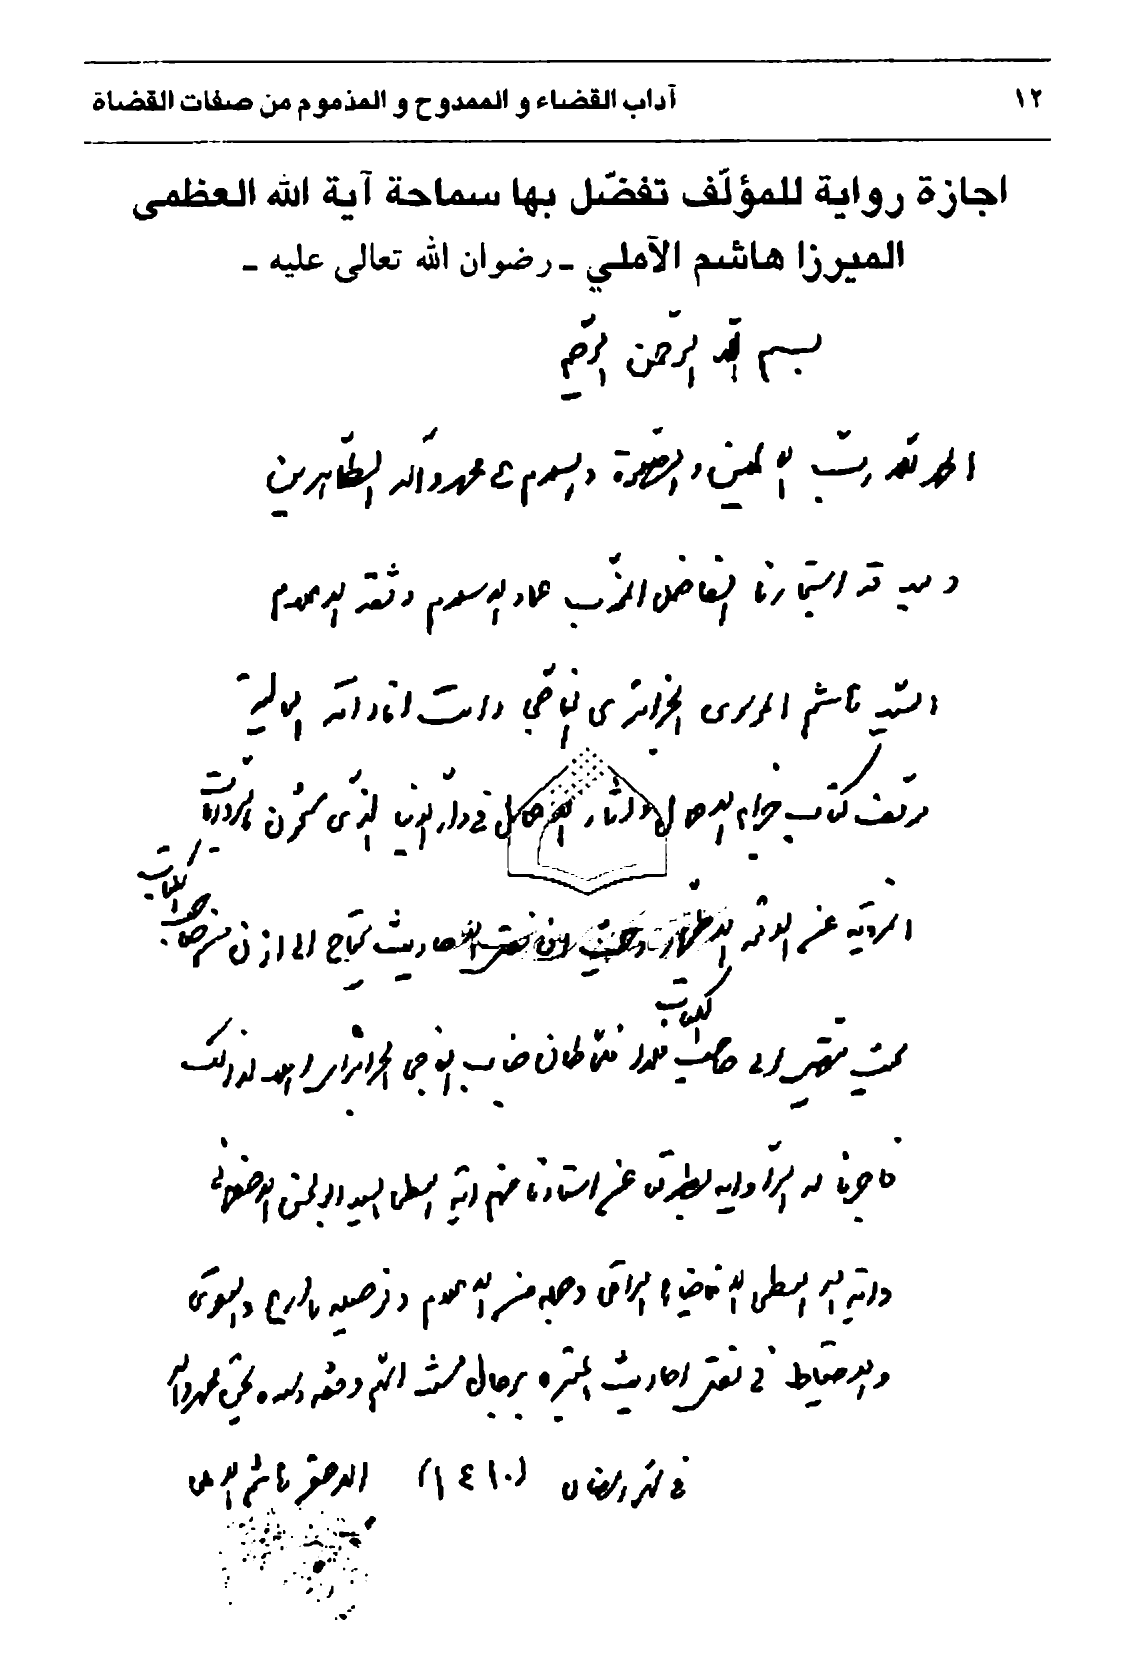 ١٢
آداب القضاء و الممدوح و المذموم من صفات القضاة
اجازة رواية للمؤلّف تفضّل بها سماحة آية الله العظمى
الميرزا هاشم الآملي ـ رضوان الله تعالى عليه ـ
بسم الله الرحمن الرحيم
الحمد لله رب العالمين والصلوة والسلام على محمد وآله الطاهرين
وبعد قد استجازنا الفاضل المهذب عماد الاسلام وثقة الاعلام
السيد هاشم الموسوى الجزائرى الناجي دامت افاداته العالية
مؤلف كتاب جزاء الاعمال وآثار الاعمال في دار الدنيا الذى مشحون بالروايات
المروية عن الائمة الاطهار وحيث ان نقل الاحاديث يحتاج الى اذن من صاحب الكتاب
بحيث الى صاحب الكتاب فلهذا جناب الناجي الجزائرى لذالك
فاجزنا له الرواية عن استاذنا منهم آية العظمى السيد ابو الحسن الاصفهاني
وآية الله العظمى الاقا ضياء العراقى من الاعلام ونوصيه بالورع والتقوى
والاحتياط في نقل احاديث المعتبره برجال اللهم وفقه بحق محمد وآله
في شهر رمضان (١٤١٠) الاحقر هاشم الاملى